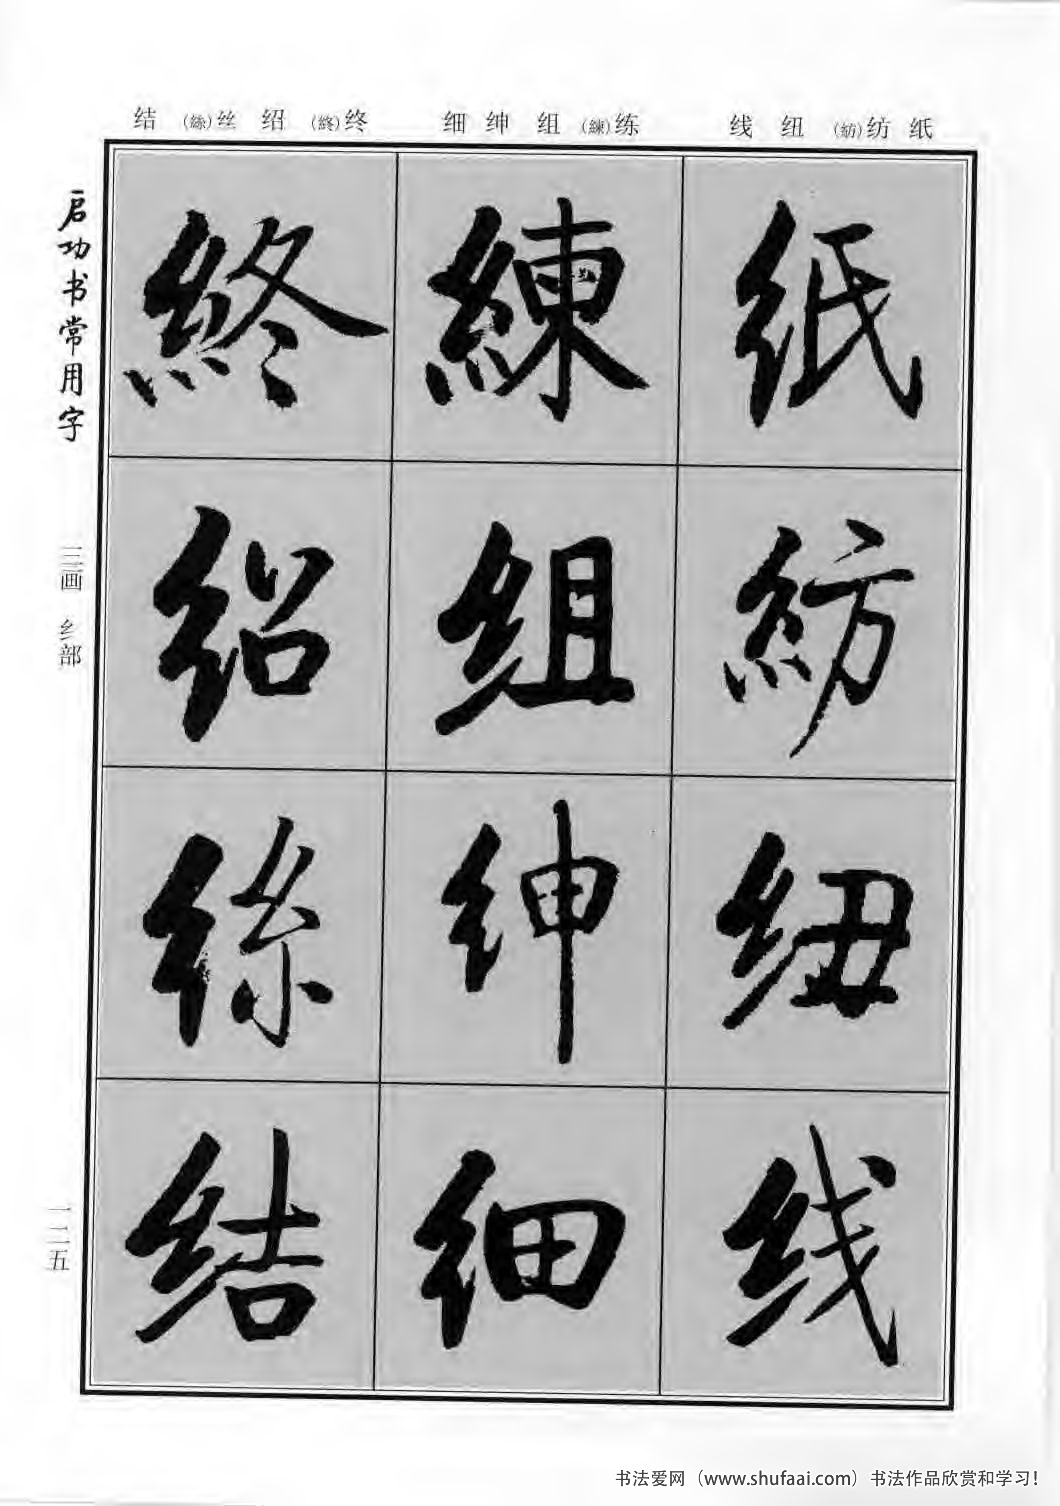 结 (絲)丝 绍 (終)终 细 绅 组 (練)练 线 纽 (紡)纺 纸
启功书常用字
三画 纟部
一二五
終 練 纸
绍 组 紡
絲 绅 纽
结 细 线
书法爱网（www.shufaai.com）书法作品欣赏和学习！